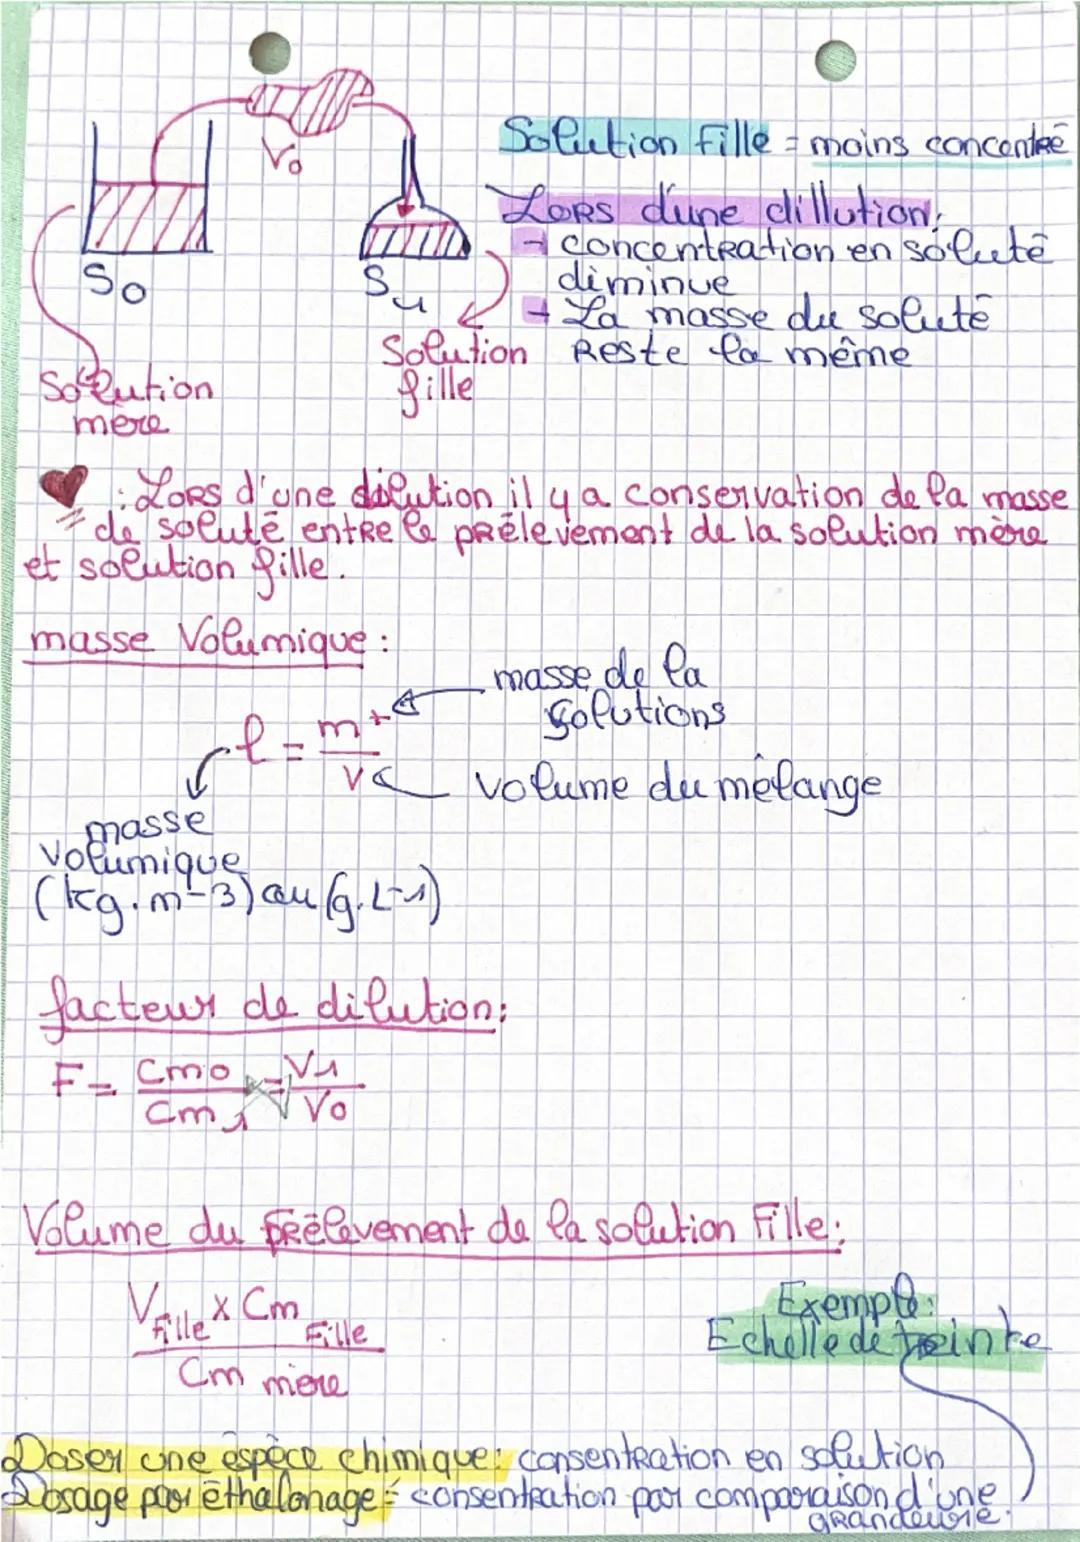 Vo
Solution Fille = moins concentrē
Lors d'une dillution:
- concentration en solutē
diminue
So
Su
- La masse du solutē
Solution
Reste la même
fille
Solution
mère
: Lors d'une dilution il y a conservation de la masse
de soluté entre le prélevement de la solution mère
et solution fille.
masse Volumique:
masse de la
solutions
ρ = m+
V
volume du mélange
masse
volumique
(kg.m-3) ou (g.L-1)
facteur de dilution:
F = Cm0 = V1
Cm1 V0
Volume du prélevement de la solution Fille:
Vfille x Cm Fille
Cm mère
Exemple:
Echelle de teinte
Doser une espèce chimique: consentration en solution
Dosage par éthalonage = consentration par comparaison d'une
grandeure.